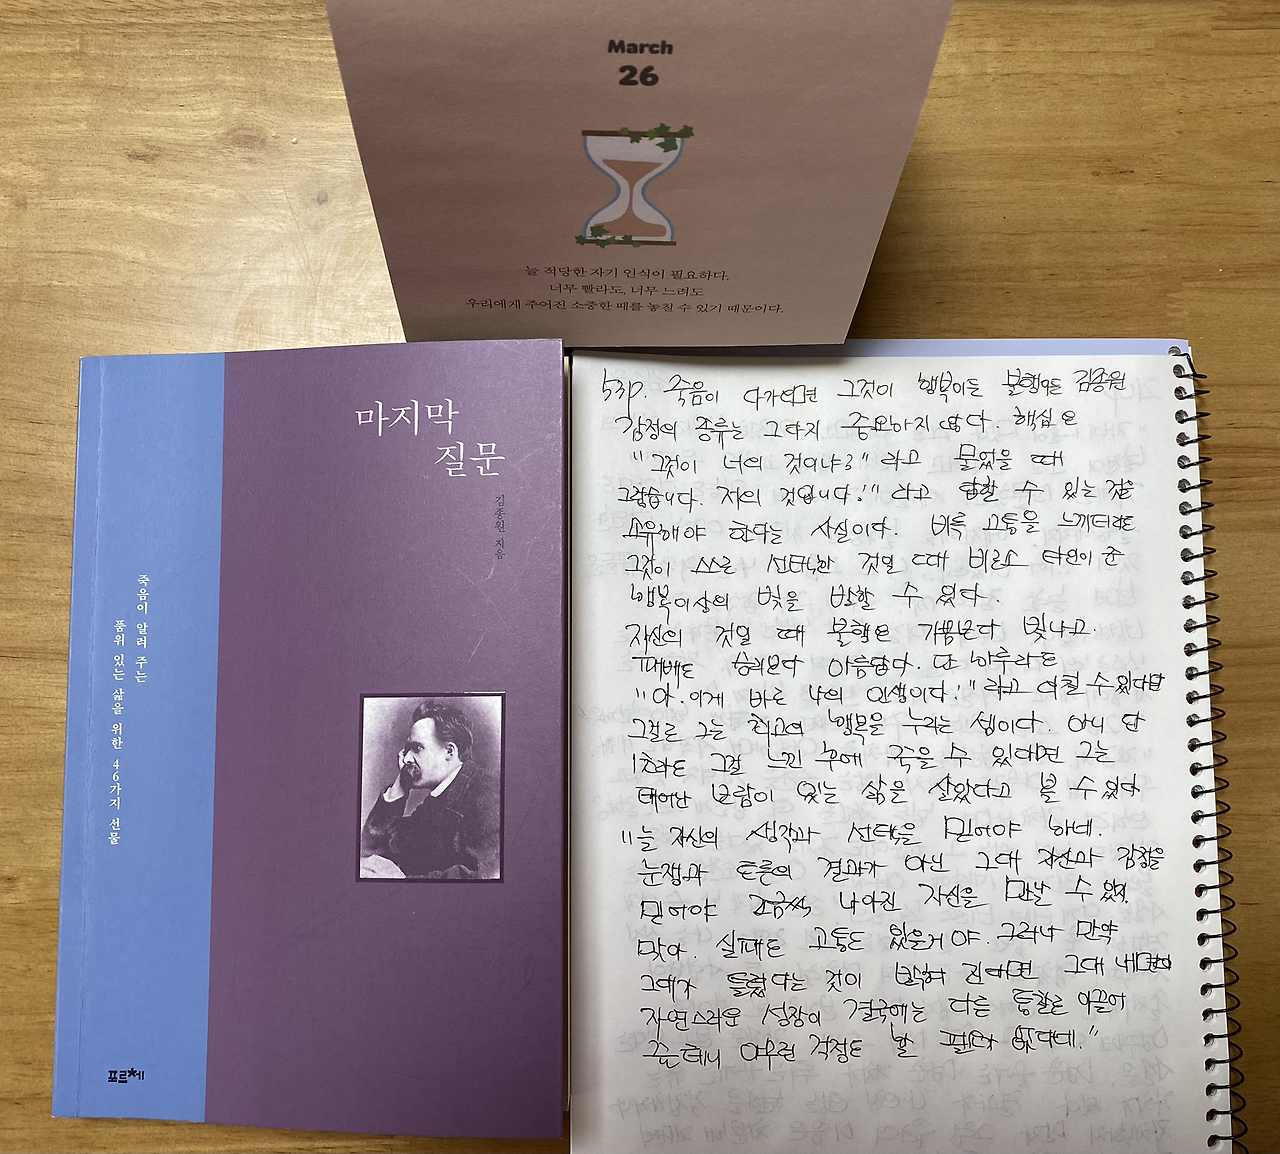 March
26
늘 적당한 자기 인식이 필요하다.
너무 빨라도, 너무 느려도
우리에게 주어진 소중한 때를 놓칠 수 있기 때문이다.
마지막
질문
김종원 지음
죽음이 알려 주는
품위 있는 삶을 위한 46가지 선물
포르체
53p. 죽음이 다가오면 그것이 행복이든 불행이든 김종원
감정의 종류는 그다지 중요하지 않다. 핵심은
"그것이 너의 것이냐?" 라고 물었을 때
그렇습니다. 저의 것입니다!" 라고 답할 수 있는 것을
소유해야 한다는 사실이다. 비록 고통을 느끼더라도
그것이 스스로 선택한 것일 때 비로소 타인이 준
행복 이상의 빛을 발할 수 있다.
자신의 것일 때 불행은 기쁨보다 빛나고
패배도 승리보다 아름답다. 단 하루라도
"아. 이게 바로 나의 인생이다!" 라고 외칠 수 있다면
그걸로 그는 최고의 행복을 누리는 셈이다. 아니 단
1초라도 그걸 느낀 후에 죽을 수 있다면 그는
태어난 보람이 있는 삶을 살았다고 볼 수 있다
"늘 자신의 생각과 선택을 믿어야 하네.
논쟁과 토론의 결과가 아닌 그대 자신과 감정을
믿어야 조금씩 나아진 자신을 만날 수 있지.
맞아. 실패도 고통도 있을거야. 그러나 만약
그대가 틀렸다는 것이 밝혀진다면 그대 내면의
자연스러운 성장이 결국에는 다른 통찰로 이끌어
줄테니 아무런 걱정도 할 필요가 없다네."